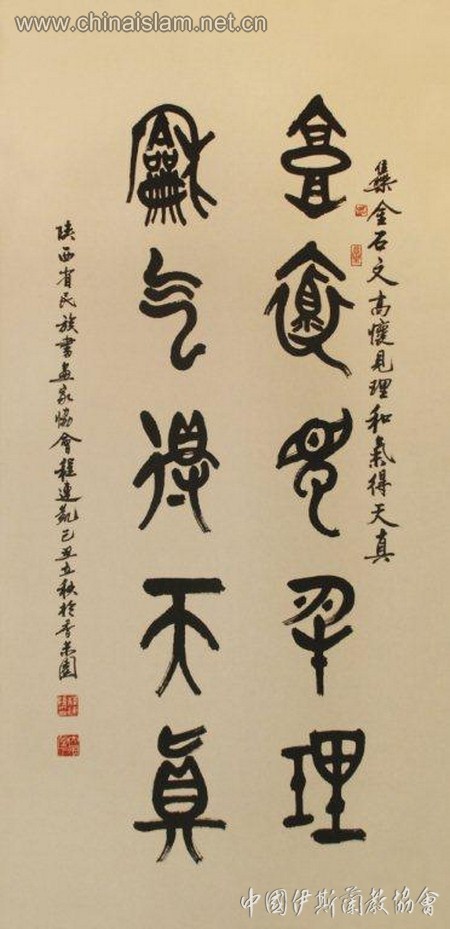 www.chinaislam.net.cn
集金石文高懷見理和氣得天真
高懷見物理
龢气得天真
陝西省民族書畫家協會程連凱己丑立秋於香米園
中國伊斯蘭教協會